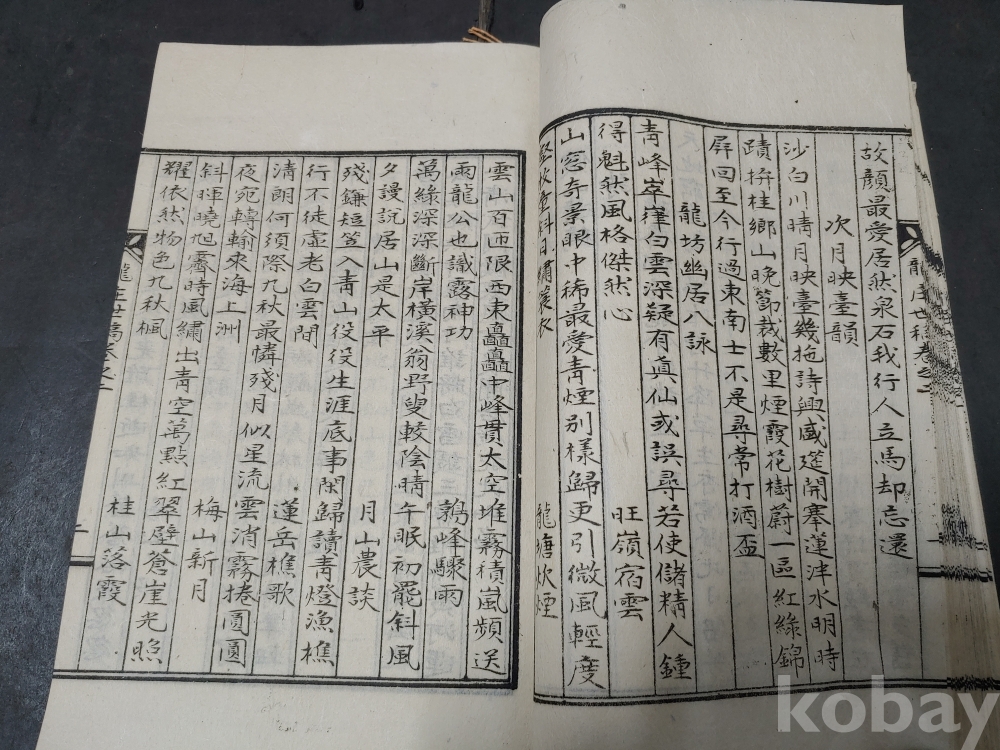 故顔最愛居然泉石我行人立馬却忘還
次月映臺韻
沙白川晴月映臺幾拖詩興盛筵開搴蓮泮水明時
蹟拚桂鄉山晩節栽數里煙霞花樹蔚一區紅綠錦
屛回至今行過東南士不是尋常打酒盃
龍坊幽居八詠
靑峰崒嵂白雲深疑有眞仙或誤尋若使儲精人鍾
得魁然風格傑然心 旺嶺宿雲
山窓奇景眼中稀最愛靑煙別樣歸更引微風輕度
龍塘炊煙
龍 世稿卷之一
雲山百匝限西東矗矗中峰貫太空堆霧積嵐頻送
雨龍公也識露神功 鶉峰驟雨
萬綠深深斷岸橫溪翁野叟較陰晴午眠初罷斜風
夕謾說居山是太平 月山農談
殘鎌短笠入靑山役役生涯底事閑歸讀靑燈漁樵
行不徒虛老白雲間 蓮岳樵歌
淸朗何須際九秋最憐殘月似星流雲消霧捲圓圓
夜宛轉輪來海上洲 梅山新月
斜暉曉旭霽時風繡出靑空萬點紅翠壁蒼崖光照
耀依然物色九秋楓 桂山落霞
龍 世稿卷之一 二
kobay